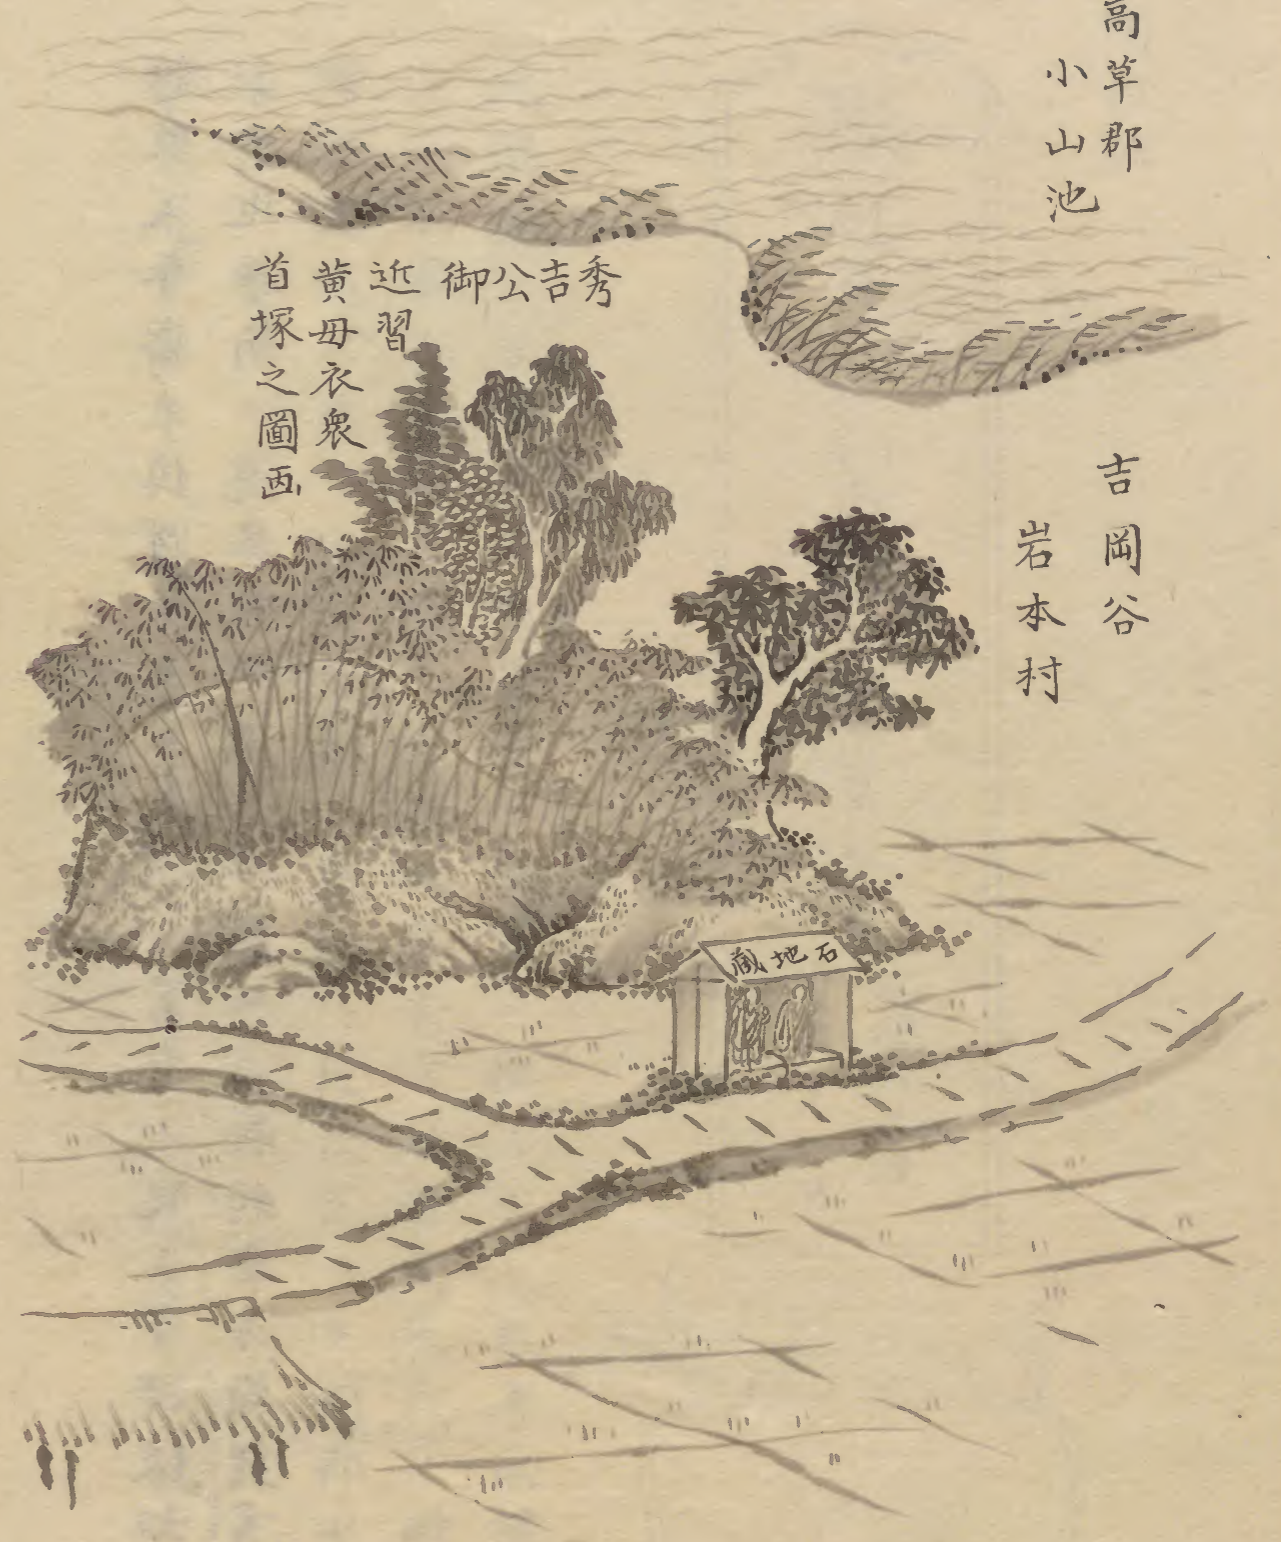 高草郡
小山池
吉岡谷
岩本村
秀吉公御
近習
黄母衣衆
首塚之圖
石地蔵